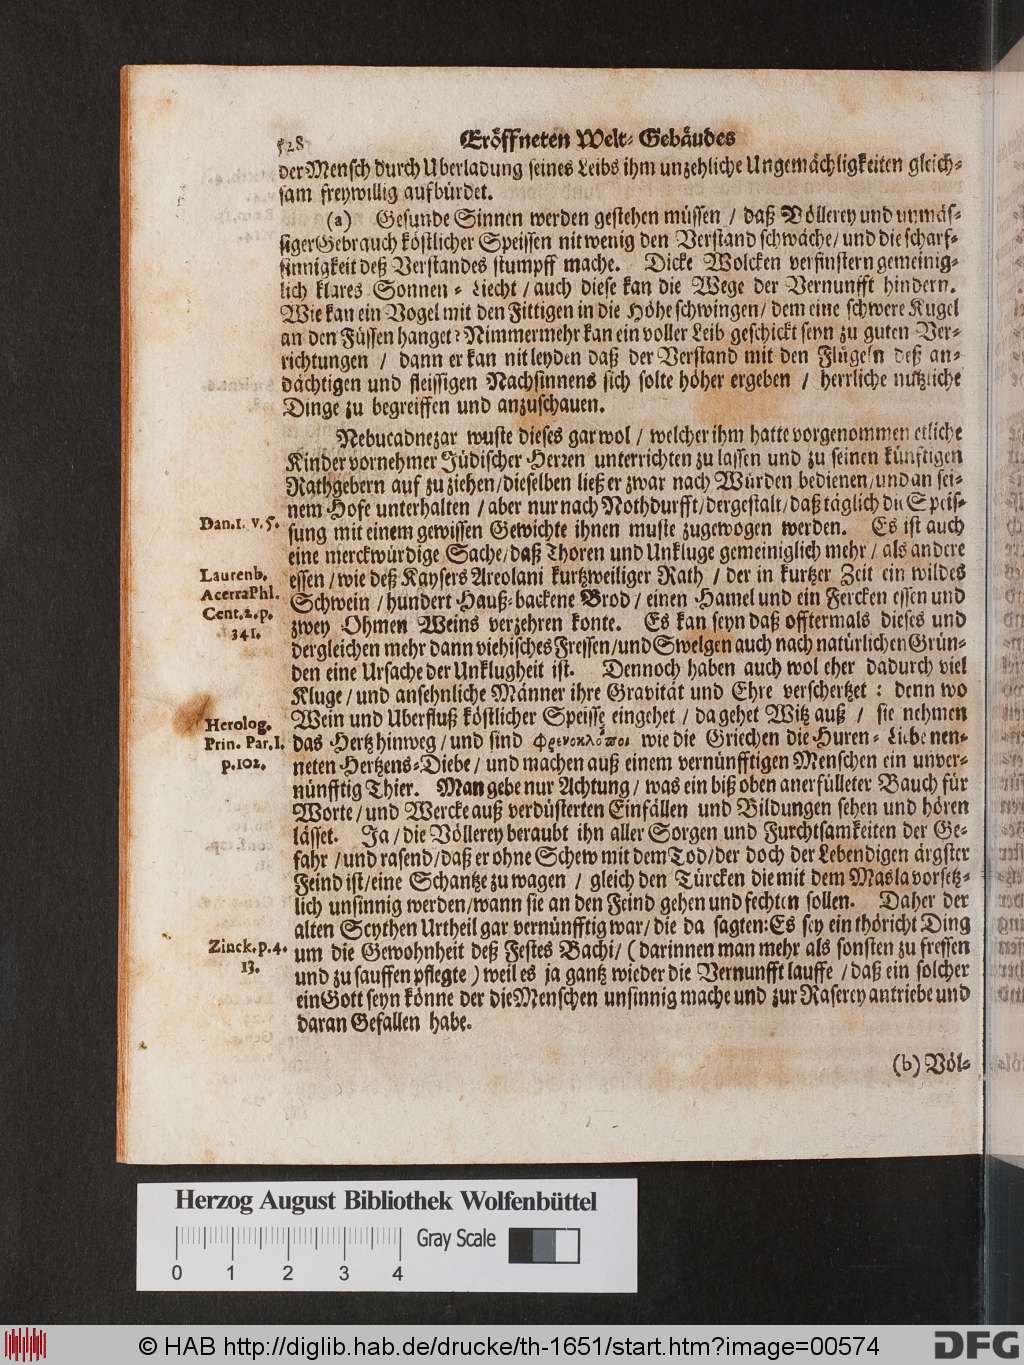 528 Eröffneten Welt-Gebäudes
der Mensch durch Uberladung seines Leibs ihm unzehliche Ungemächligkeiten gleich-
sam freywillig aufbürdet.
(a) Gesunde Sinnen werden gestehen müssen / daß Völlerey und unmäs-
siger Gebrauch köstlicher Speissen nit wenig den Verstand schwäche / und die scharf-
sinnigkeit deß Verstandes stumpff mache. Dicke Wolcken verfinstern gemeinig-
lich klares Sonnen-Liecht / auch diese kan die Wege der Vernunfft hindern.
Wie kan ein Vogel mit den Fittigen in die Höhe schwingen / dem eine schwere Kugel
an den Füssen hanget? Nimmermehr kan ein voller Leib geschickt seyn zu guten Ver-
richtungen / dann er kan nit leyden daß der Verstand mit den Flügeln deß an-
dächtigen und fleissigen Nachsinnens sich solte höher ergeben / herrliche nutzliche
Dinge zu begreiffen und anzuschauen.
Nebucadnezar wuste dieses gar wol / welcher ihm hatte vorgenommen etliche
Kinder vornehmer Jüdischer Herren unterrichten zu lassen und zu seinen künftigen
Rathgebern auf zu ziehen / dieselben ließ er zwar nach Würden bedienen / und an sei-
nem Hofe unterhalten / aber nur nach Nothdurfft / dergestalt / daß täglich die Speis-
Dan. 1. v. 5.
sung mit einem gewissen Gewichte ihnen muste zugewogen werden. Es ist auch
eine merckwürdige Sache / daß Thoren und Unkluge gemeiniglich mehr / als andere
Laurenb.
Acerra Phl.
Cent. 2. p.
341.
essen / wie deß Kaysers Areolani kurtzweiliger Rath / der in kurtzer Zeit ein wildes
Schwein / hundert Hauß-backene Brod / einen Hamel und ein Fercken essen und
zwey Ohmen Weins verzehren konte. Es kan seyn daß offtermals dieses und
dergleichen mehr dann viehisches Fressen / und Swelgen auch nach natürlichen Grün-
den eine Ursache der Unklugheit ist. Dennoch haben auch wol eher dadurch viel
Kluge / und ansehnliche Männer ihre Gravität und Ehre verschertzet : denn wo
Wein und Uberfluß köstlicher Speisse eingehet / da gehet Witz auß / sie nehmen
Herolog.
Prin. Par. I.
p. 102.
das Hertz hinweg / und sind φρενοκλόποι wie die Griechen die Huren-Liebe nen-
neten Hertzens-Diebe / und machen auß einem vernünfftigen Menschen ein unver-
nünfftig Thier. Man gebe nur Achtung / was ein biß oben anerfülleter Bauch für
Worte / und Wercke auß verdüsterten Einfällen und Bildungen sehen und hören
lässet. Ja / die Völlerey beraubt ihn aller Sorgen und Furchtsamkeiten der Ge-
fahr / und rasend / daß er ohne Schew mit dem Tod / der doch der Lebendigen ärgster
Feind ist / eine Schantze zu wagen / gleich den Türcken die mit dem Masla vorsetz-
lich unsinnig werden / wann sie an den Feind gehen und fechten sollen. Daher der
alten Scythen Urtheil gar vernünfftig war / die da sagten: Es sey ein thöricht Ding
Zinck. p. 4.
13.
um die Gewohnheit deß Festes Bachi / (darinnen man mehr als sonsten zu fressen
und zu sauffen pflegte) weil es ja gantz wieder die Vernunfft lauffe / daß ein solcher
ein Gott seyn könne der die Menschen unsinnig mache und zur Raserey antriebe und
daran Gefallen habe.
(b) Völ-
Herzog August Bibliothek Wolfenbüttel
Gray Scale
0 1 2 3 4
© HAB http://diglib.hab.de/drucke/th-1651/start.htm?image=00574
DFG